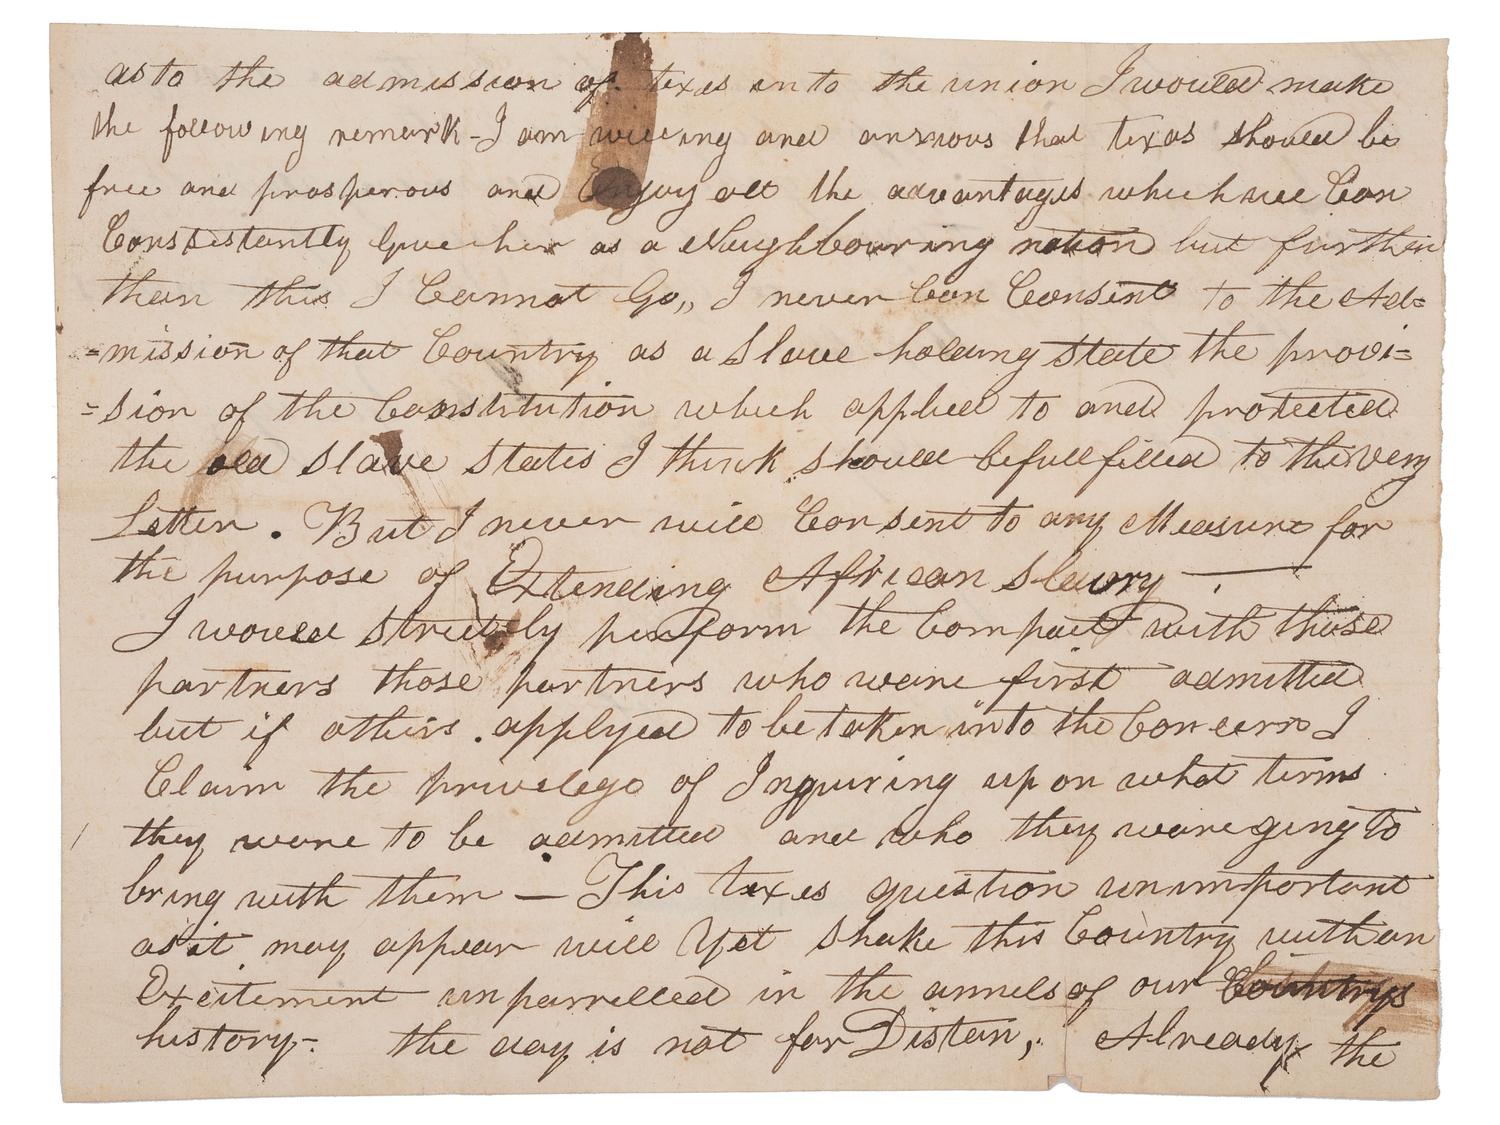 as to the admission of texas into the union I would make
the following remark - I am willing and anxious that texas should be
free and prosperous and Enjoy all the advantages which we Can
Consistantly Give her as a Neighbouring nation but further
than this I Cannot Go,, I never Can Consent to the Ad=
=mission of that Country as a Slave holding state the provi=
=sion of the Constitution which applied to and protected
the old slave states I think should be fullfilled to the very
Letter. But I never will Consent to any Measure for
the purpose of Extending African Slavry —
I would strictly perform the Compact with those
partners those partners who ware first admitted
but if others applyed to be taken into the Concern I
Claim the privelege of Inquiring upon what terms
they ware to be admitted and who they ware going to
bring with them — This texas question unimportant
as it may appear will Yet shake this Country with an
Excitement unparrelled in the annels of our Countrys
history - the day is not far Distan, Already the